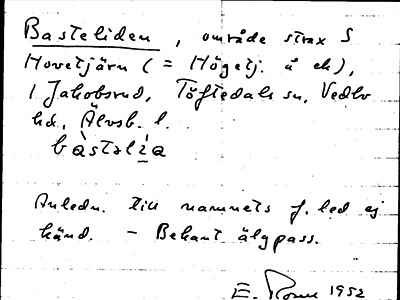 Basteliden, område strax S
Hovetjärn (= Högetj. å ek),
i Jakobsrud, Töftedals sn, Vedbo
hd, Älvsb. l.
bàstəlìa
Anledn. till namnets f. led ej
känd. - Bekant älgpass.
E. 1952